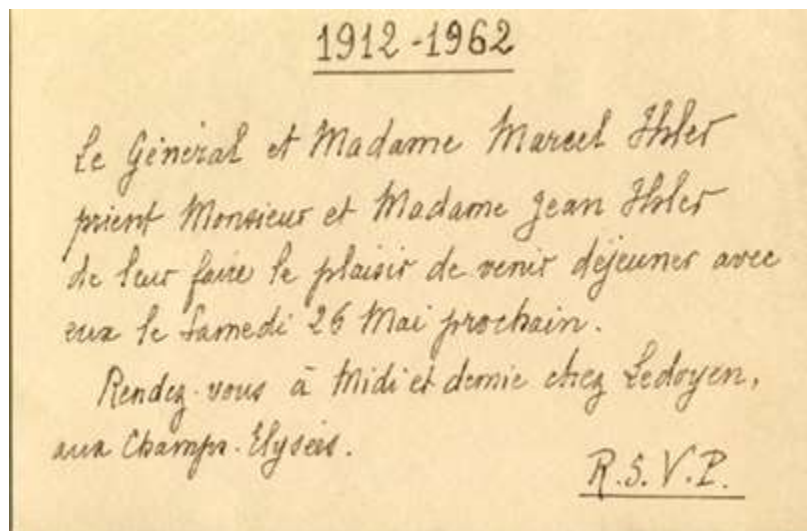 1912-1962
Le Général et Madame Marcel Ihler
prient Monsieur et Madame Jean Ihler
de leur faire le plaisir de venir déjeuner avec
eux le Samedi 26 Mai prochain.
Rendez-vous à Midi et demie chez Ledoyen,
aux Champs-Elysées.
R.S.V.P.